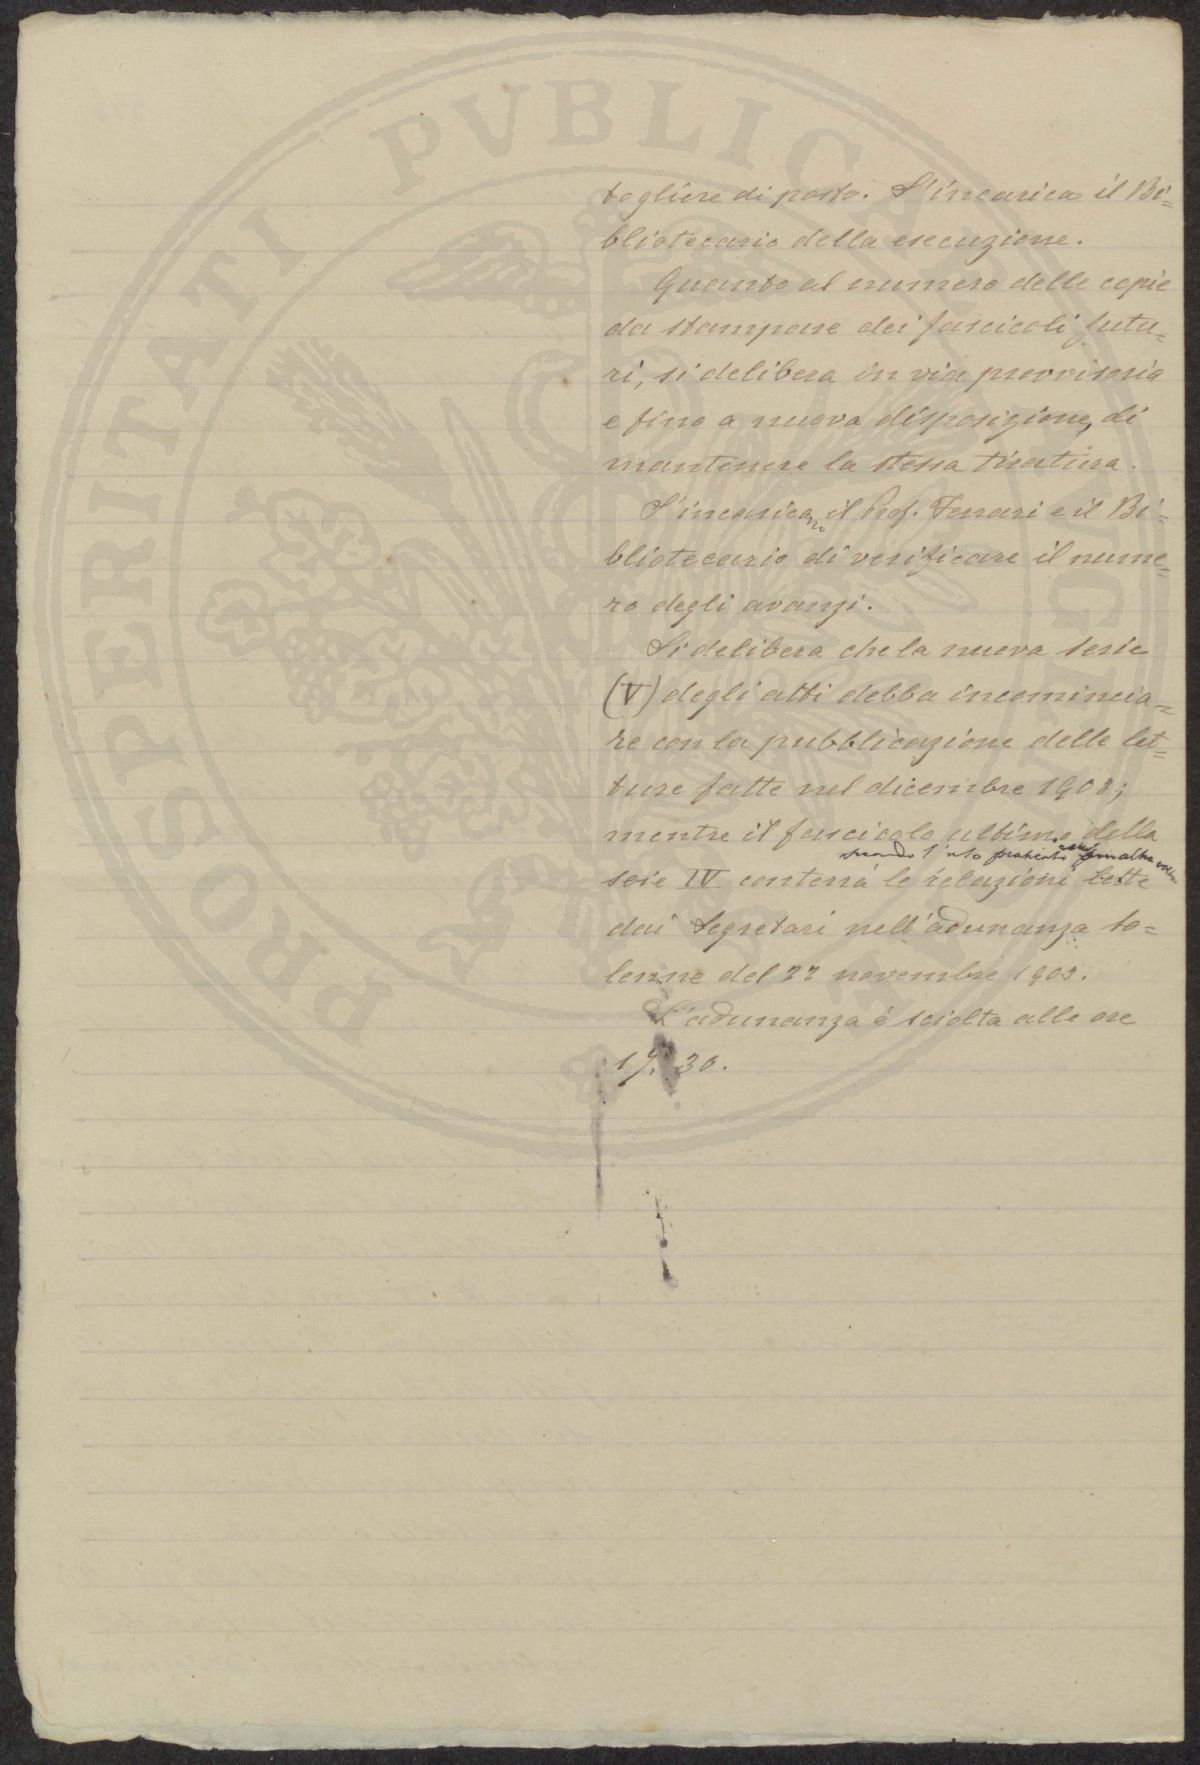 PROSPERITATI PVBLICAE
togliere di posto. S'incarica il Bi=
bliotecario della esecuzione.
Quanto al numero delle copie
da stampare dei fascicoli futu=
ri, si delibera in via provvisoria
e fino a nuova disposizione, di
mantenere la stessa tiratura.
S'incaricano il Prof. Ferrari e il Bi=
bliotecario di verificare il nume=
ro degli avanzi.
Si delibera che la nuova serie
(V) degli atti debba incomincia=
re con la pubblicazione delle let=
ture fatte nel dicembre 1903;
mentre il fascicolo ultimo della
secondo l'uso praticato altra volta
serie IV conterrà le relazioni lette
dai Segretari nell'adunanza so=
lenne del 22 novembre 1903.
L'adunanza è sciolta alle ore
17.30.